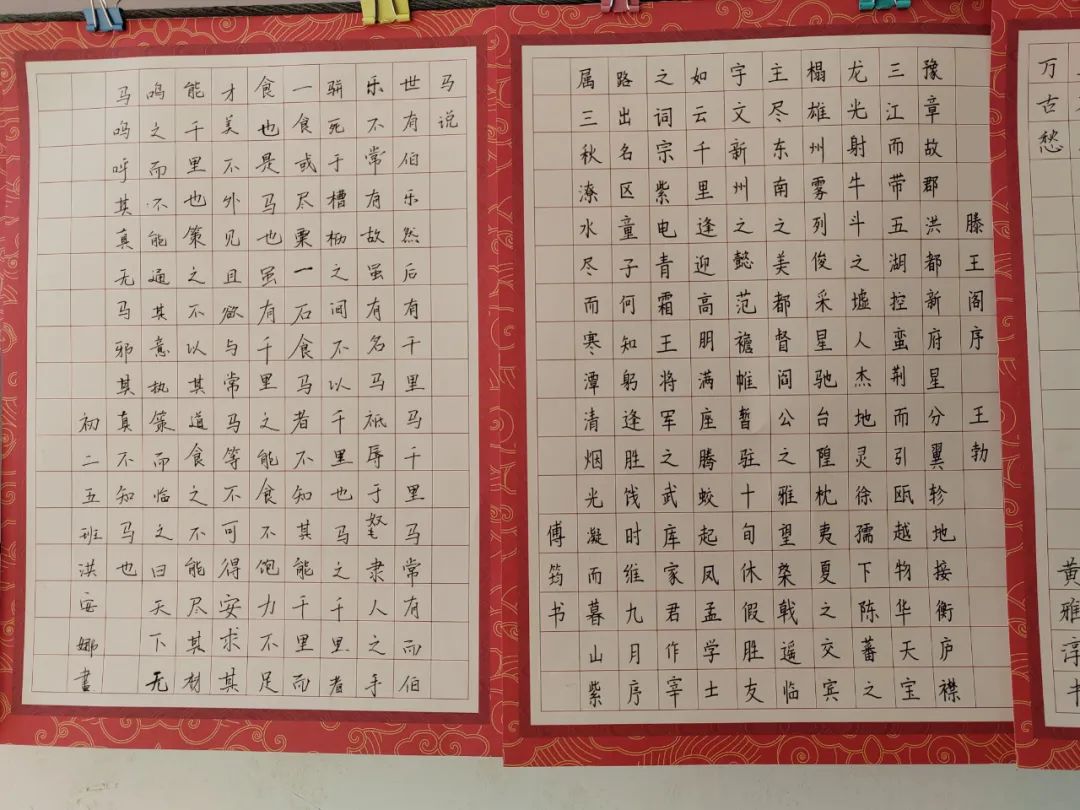 马说
世有伯乐然后有千里马千里马常有而伯
乐不常有故虽有名马祗辱于隶人之手
骈死于槽枥之间不以千里也马之千里者
一食或尽粟一石食马者不知其能千里而
食也是马也虽有千里之能食不饱力不足
才美不外见且欲与常马等不可得安求其
能千里也策之不以其道食之不能尽其材
鸣之而不能通其意执策而临之曰天下无
马呜呼其真无马邪其真不知马也
初二五班洪安娜書
滕王阁序 王勃
豫章故郡洪都新府星分翼轸地接衡庐襟
三江而带五湖控蛮荆而引瓯越物华天宝
龙光射牛斗之墟人杰地灵徐孺下陈蕃之
榻雄州雾列俊采星驰台隍枕夷夏之交宾
主尽东南之美都督阎公之雅望棨戟遥临
宇文新州之懿范襜帷暂驻十旬休假胜友
如云千里逢迎高朋满座腾蛟起凤孟学士
之词宗紫电青霜王将军之武库家君作宰
路出名区童子何知躬逢胜饯时维九月序
属三秋潦水尽而寒潭清烟光凝而暮山紫
傅筠书
万古愁
黄雅淳书